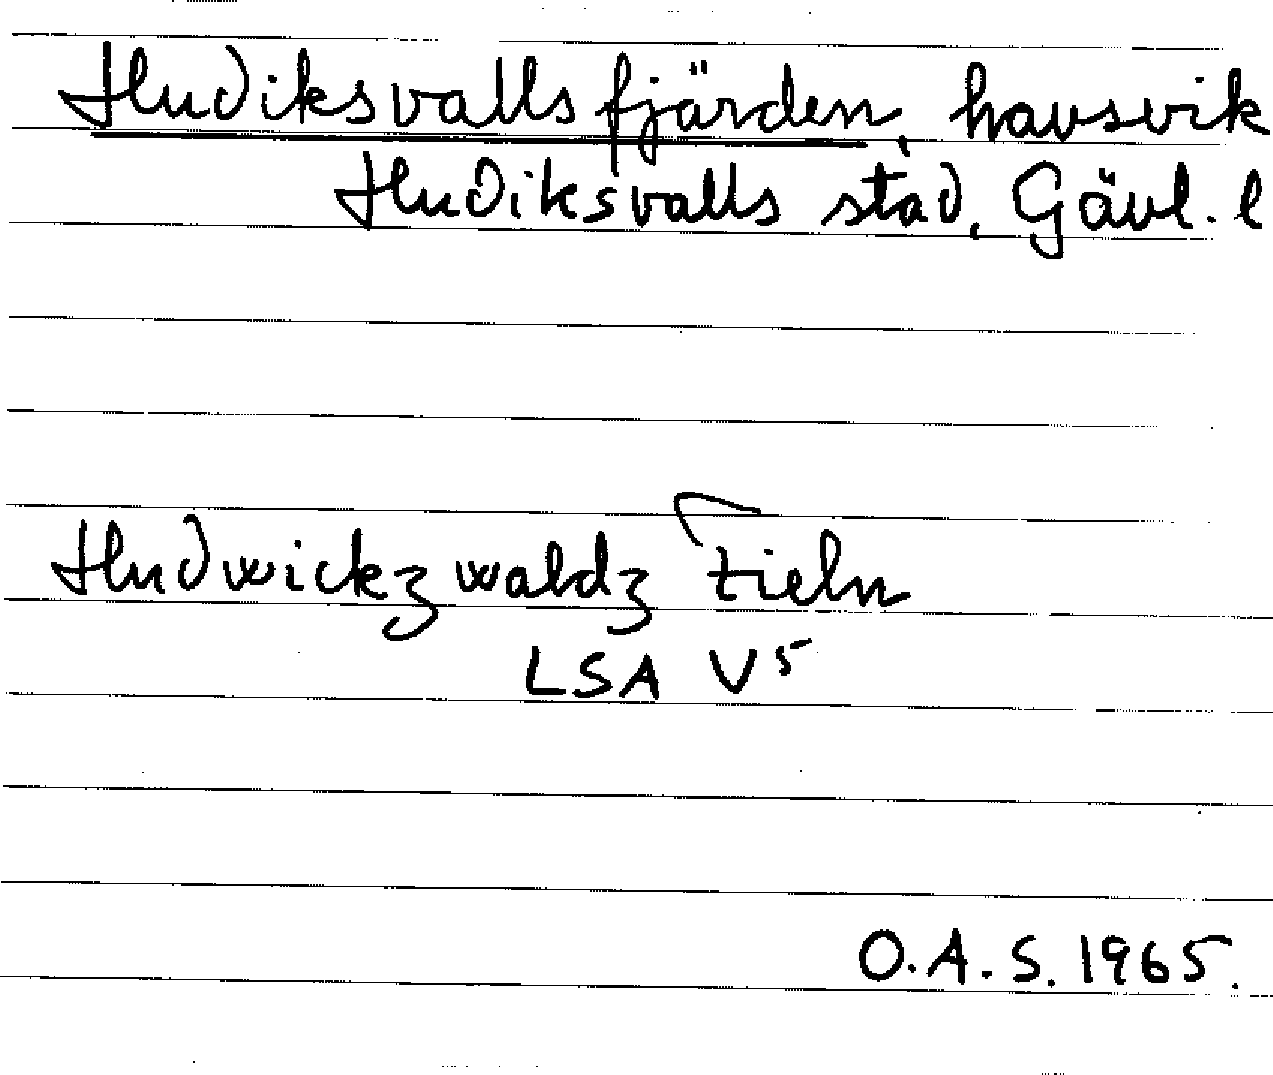 Hudiksvallsfjärden, havsvik
Hudiksvalls stad, Gävl. l
Hudwickz waldz
LSA V5
O.A.S. 1965.